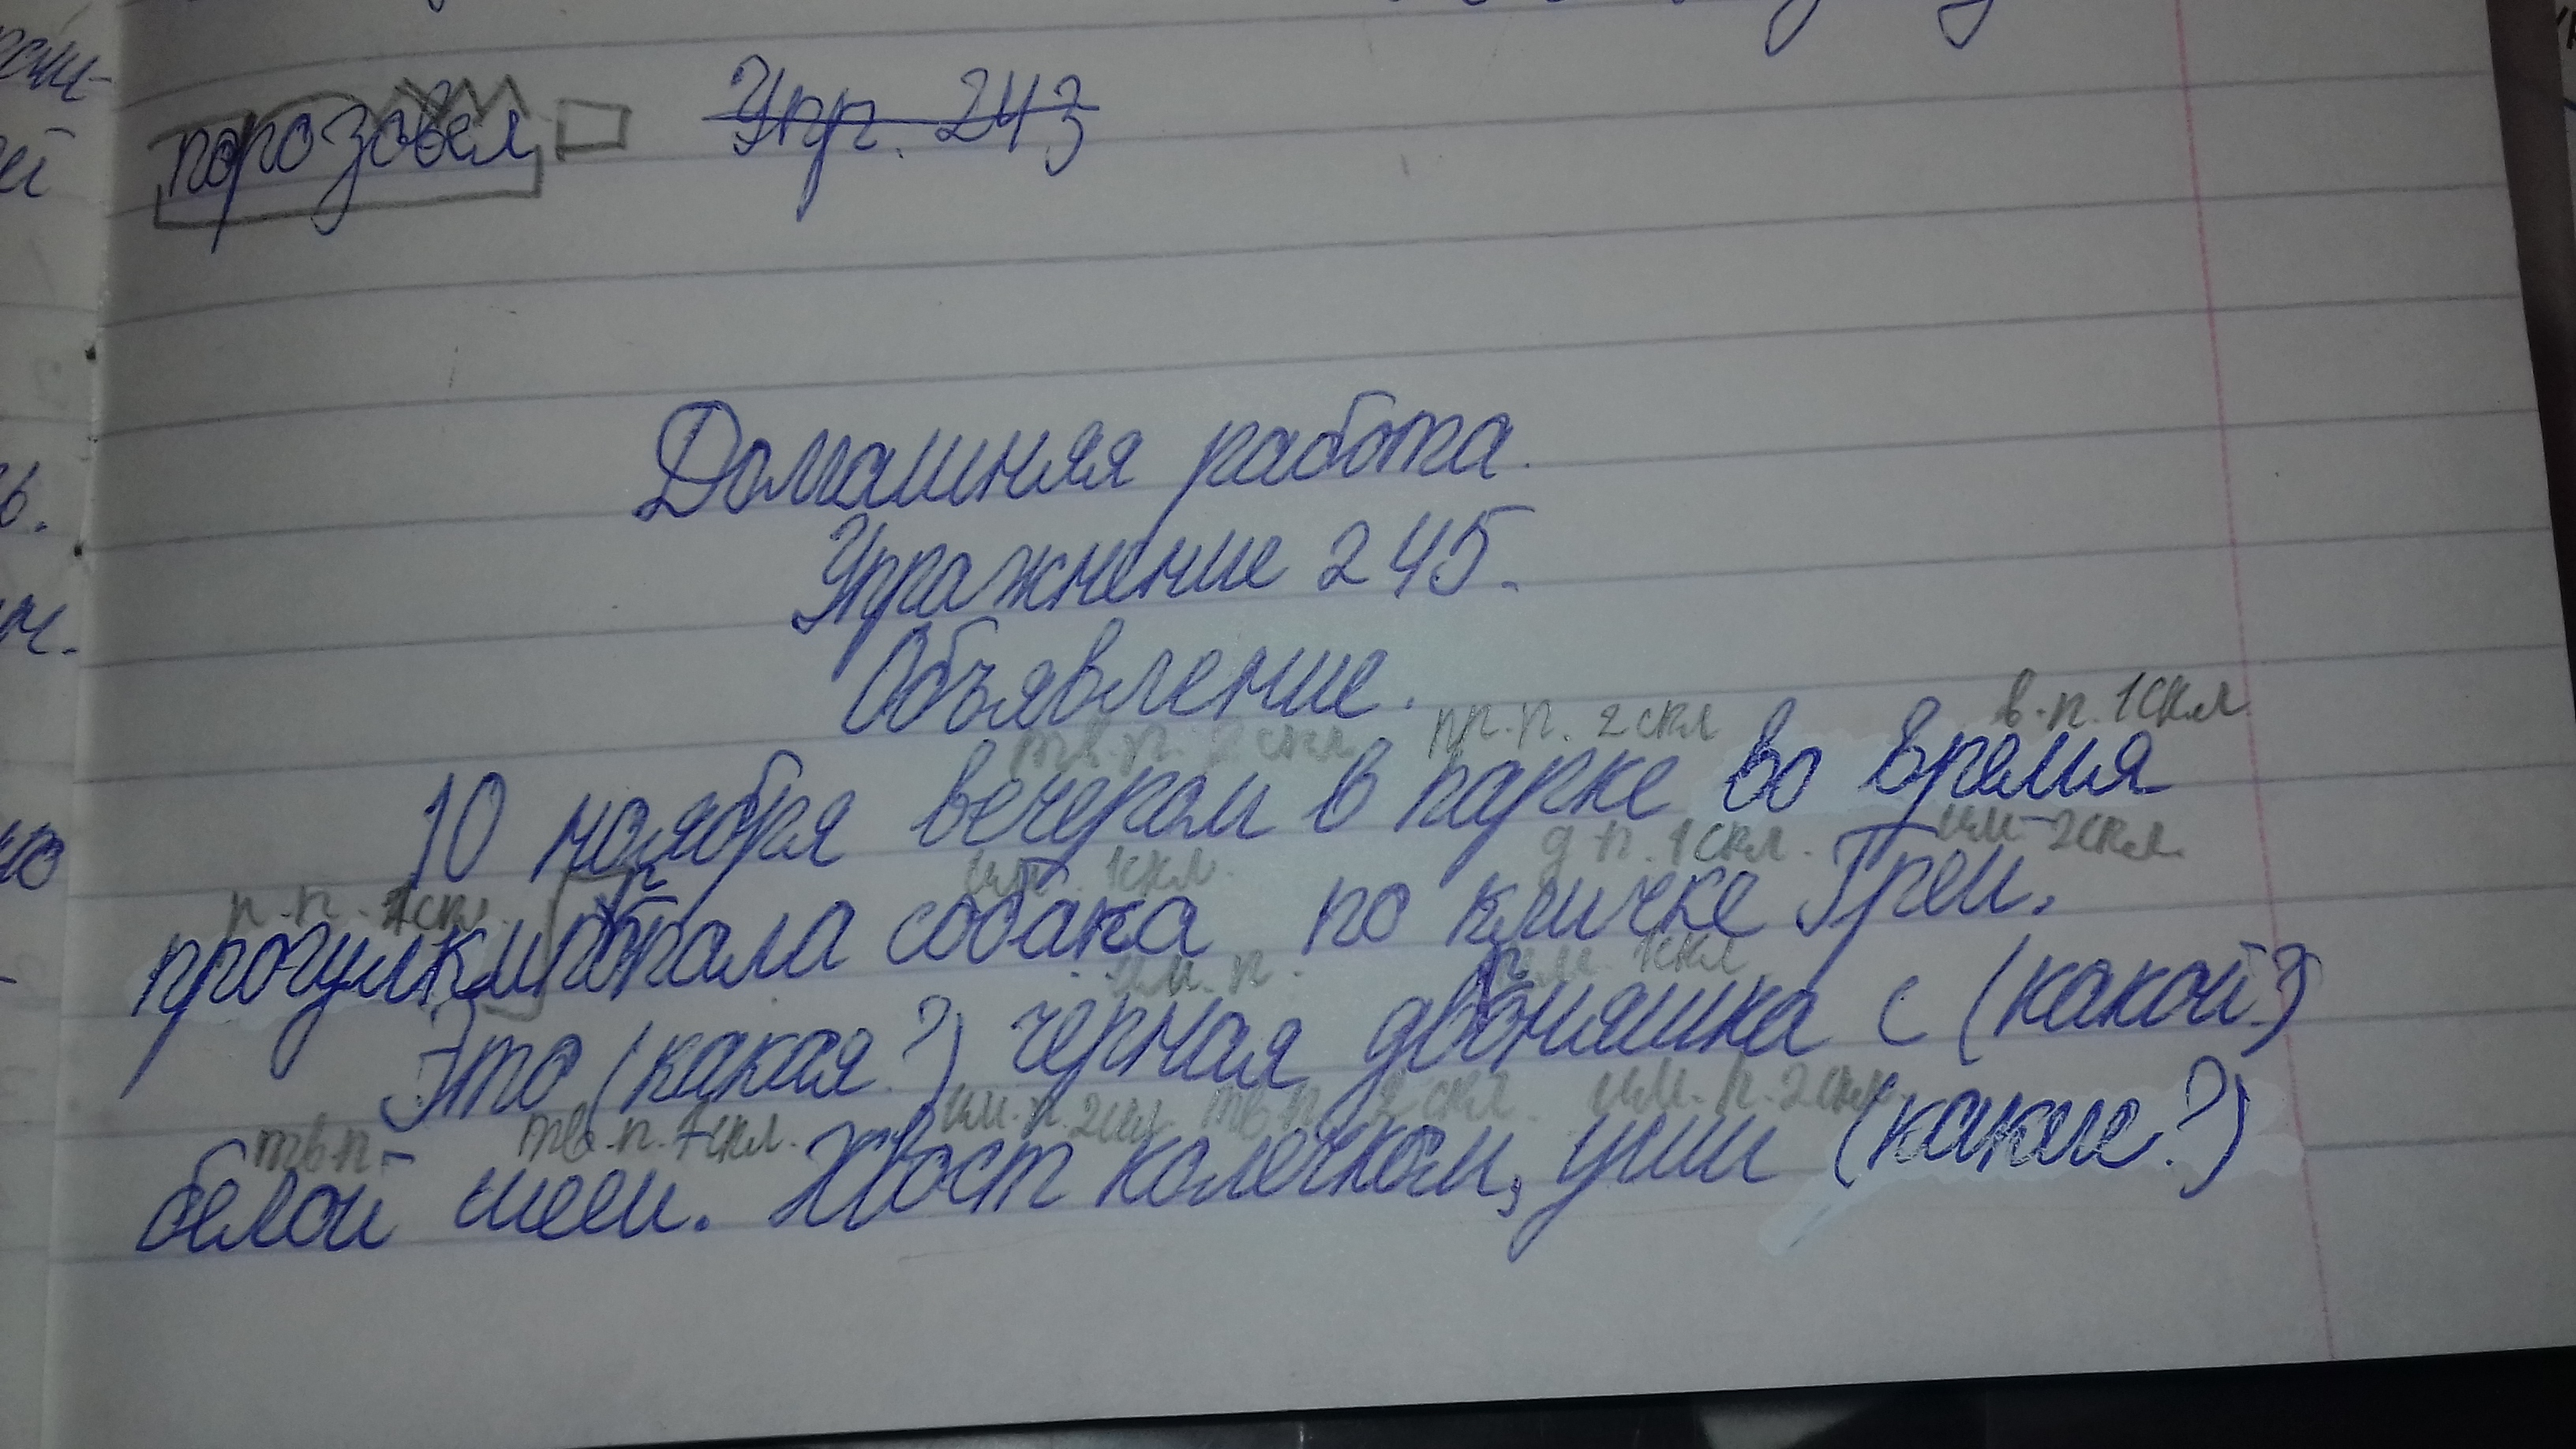 порозовел Упр. 243
Домашняя работа.
Упражнение 245.
Объявление.
тв.п. 2 скл пр.п. 2 скл в.п. 1 скл
10 ноября вечером в парке во время
р.п. 1 скл. им. 1 скл. д.п. 1 скл. им 2 скл.
прогулки пропала собака по кличке Грей.
им.п. им. 1 скл
Это (какая?) чёрная дворняшка с (какой?)
тв.п. тв.п. 1 скл. им.п. 2 скл тв.п. 2 скл. им.п. 2 скл.
белой шеей. Хвост колечком, уши (какие?)